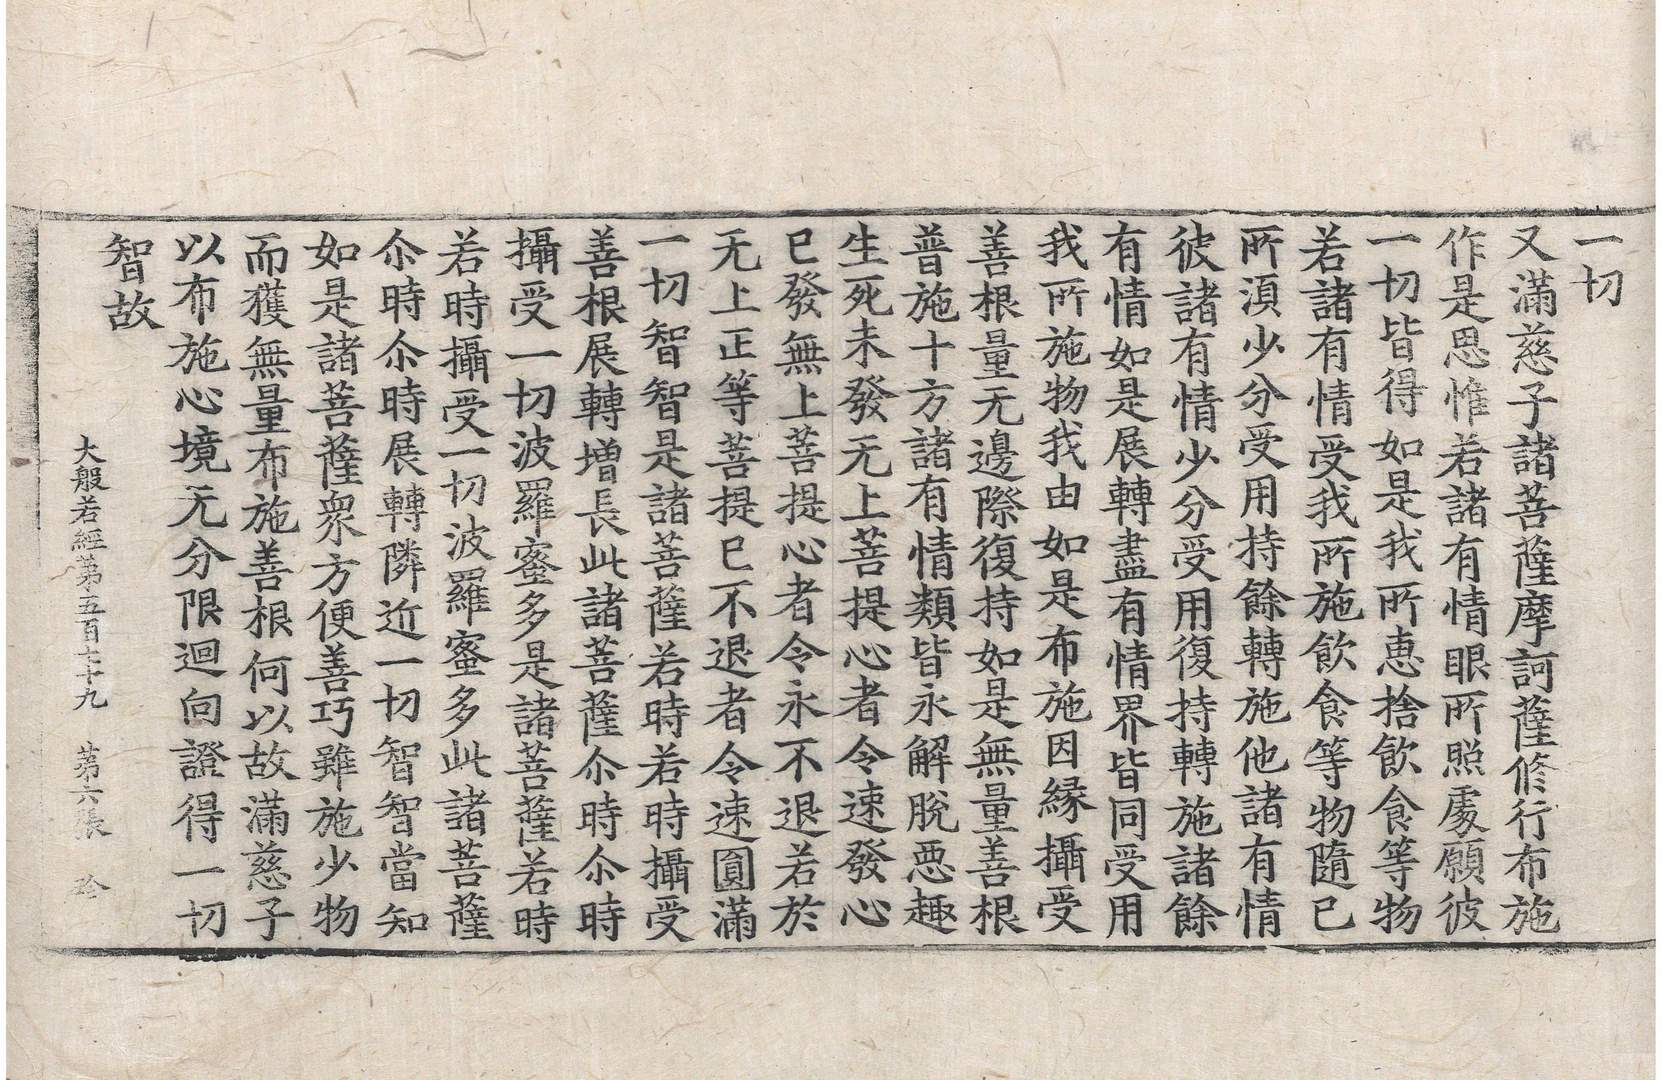 一切
又滿慈子諸菩薩摩訶薩修行布施
作是思惟若諸有情眼所照處願彼
一切皆得如是我所惠捨飲食等物
若諸有情受我所施飲食等物隨已
所湏少分受用持餘轉施他諸有情
彼諸有情少分受用復持轉施諸餘
有情如是展轉盡有情界皆同受用
我所施物我由如是布施因緣攝受
善根量无邊際復持如是無量善根
普施十方諸有情類皆永解脫惡趣
生死未發无上菩提心者令速發心
已發無上菩提心者令永不退若於
无上正等菩提已不退者令速圓滿
一切智智是諸菩薩若時若時攝受
善根展轉增長此諸菩薩尒時尒時
攝受一切波羅蜜多是諸菩薩若時
若時攝受一切波羅蜜多此諸菩薩
尒時尒時展轉隣近一切智智當知
如是諸菩薩衆方便善巧雖施少物
而獲無量布施善根何以故滿慈子
以布施心境无分限迴向證得一切
智故
大般若經第五百七十九 第六張 珍